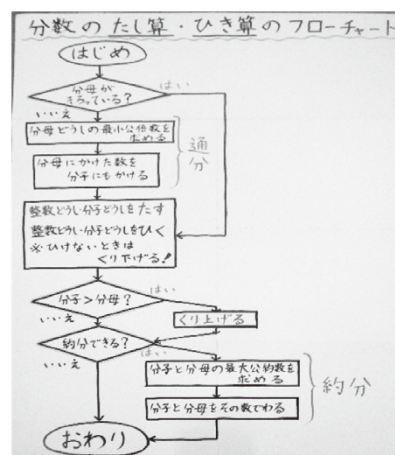 分数のたし算・ひき算のフローチャート
はじめ
分母が
そろっている?
はい
いいえ
分母どうしの最小公倍数を
求める
分母にかけた数を
分子にもかける
通分
整数どうし・分子どうしをたす
整数どうし・分子どうしをひく
※ひけないときは
くり下げる!
分子>分母?
はい
いいえ
くり上げる
約分できる?
はい
いいえ
分子と分母の最大公約数を
求める
分子と分母をその数でわる
約分
おわり